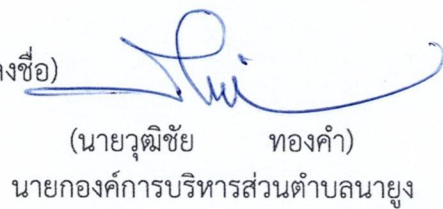 งชื่อ)
(นายวุฒิชัย ทองคำ)
นายกองค์การบริหารส่วนตำบลนายูง